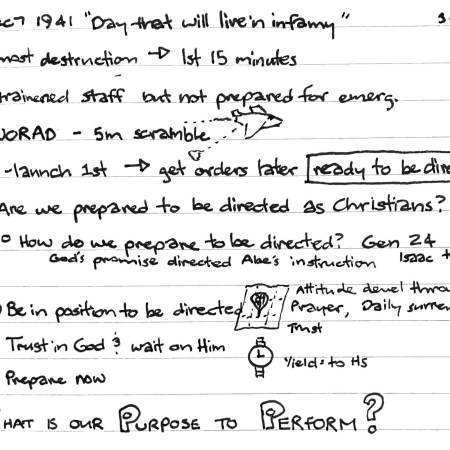 1941 "Day that will live'n infamy"
most destruction → 1st 15 minutes
trainered staff but not prepared for emerg.
NORAD - 5m scramble
-launch 1st → get orders later ready to be dire
Are we prepared to be directed as Christians?
How do we prepare to be directed? Gen 24
God's promise directed Abe's instruction Isaac
Be in position to be directed Attitude devel throu
Prayer, Daily surren
Trust
Trust in God & wait on Him
Yield: to HS
Prepare now
HAT IS OUR PURPOSE TO PERFORM?